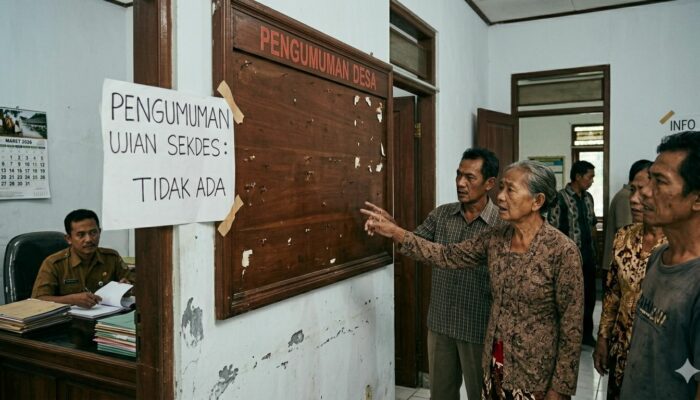 PENGUMUMAN
UJIAN SEKDES :
TIDAK ADA
PENGUMUMAN DESA
MARET 2026
INFO